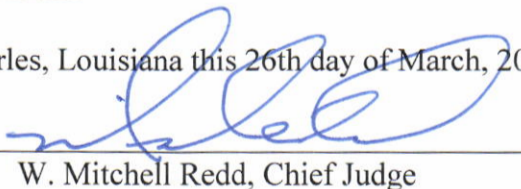 rles, Louisiana this 26th day of March, 20
W. Mitchell Redd, Chief Judge